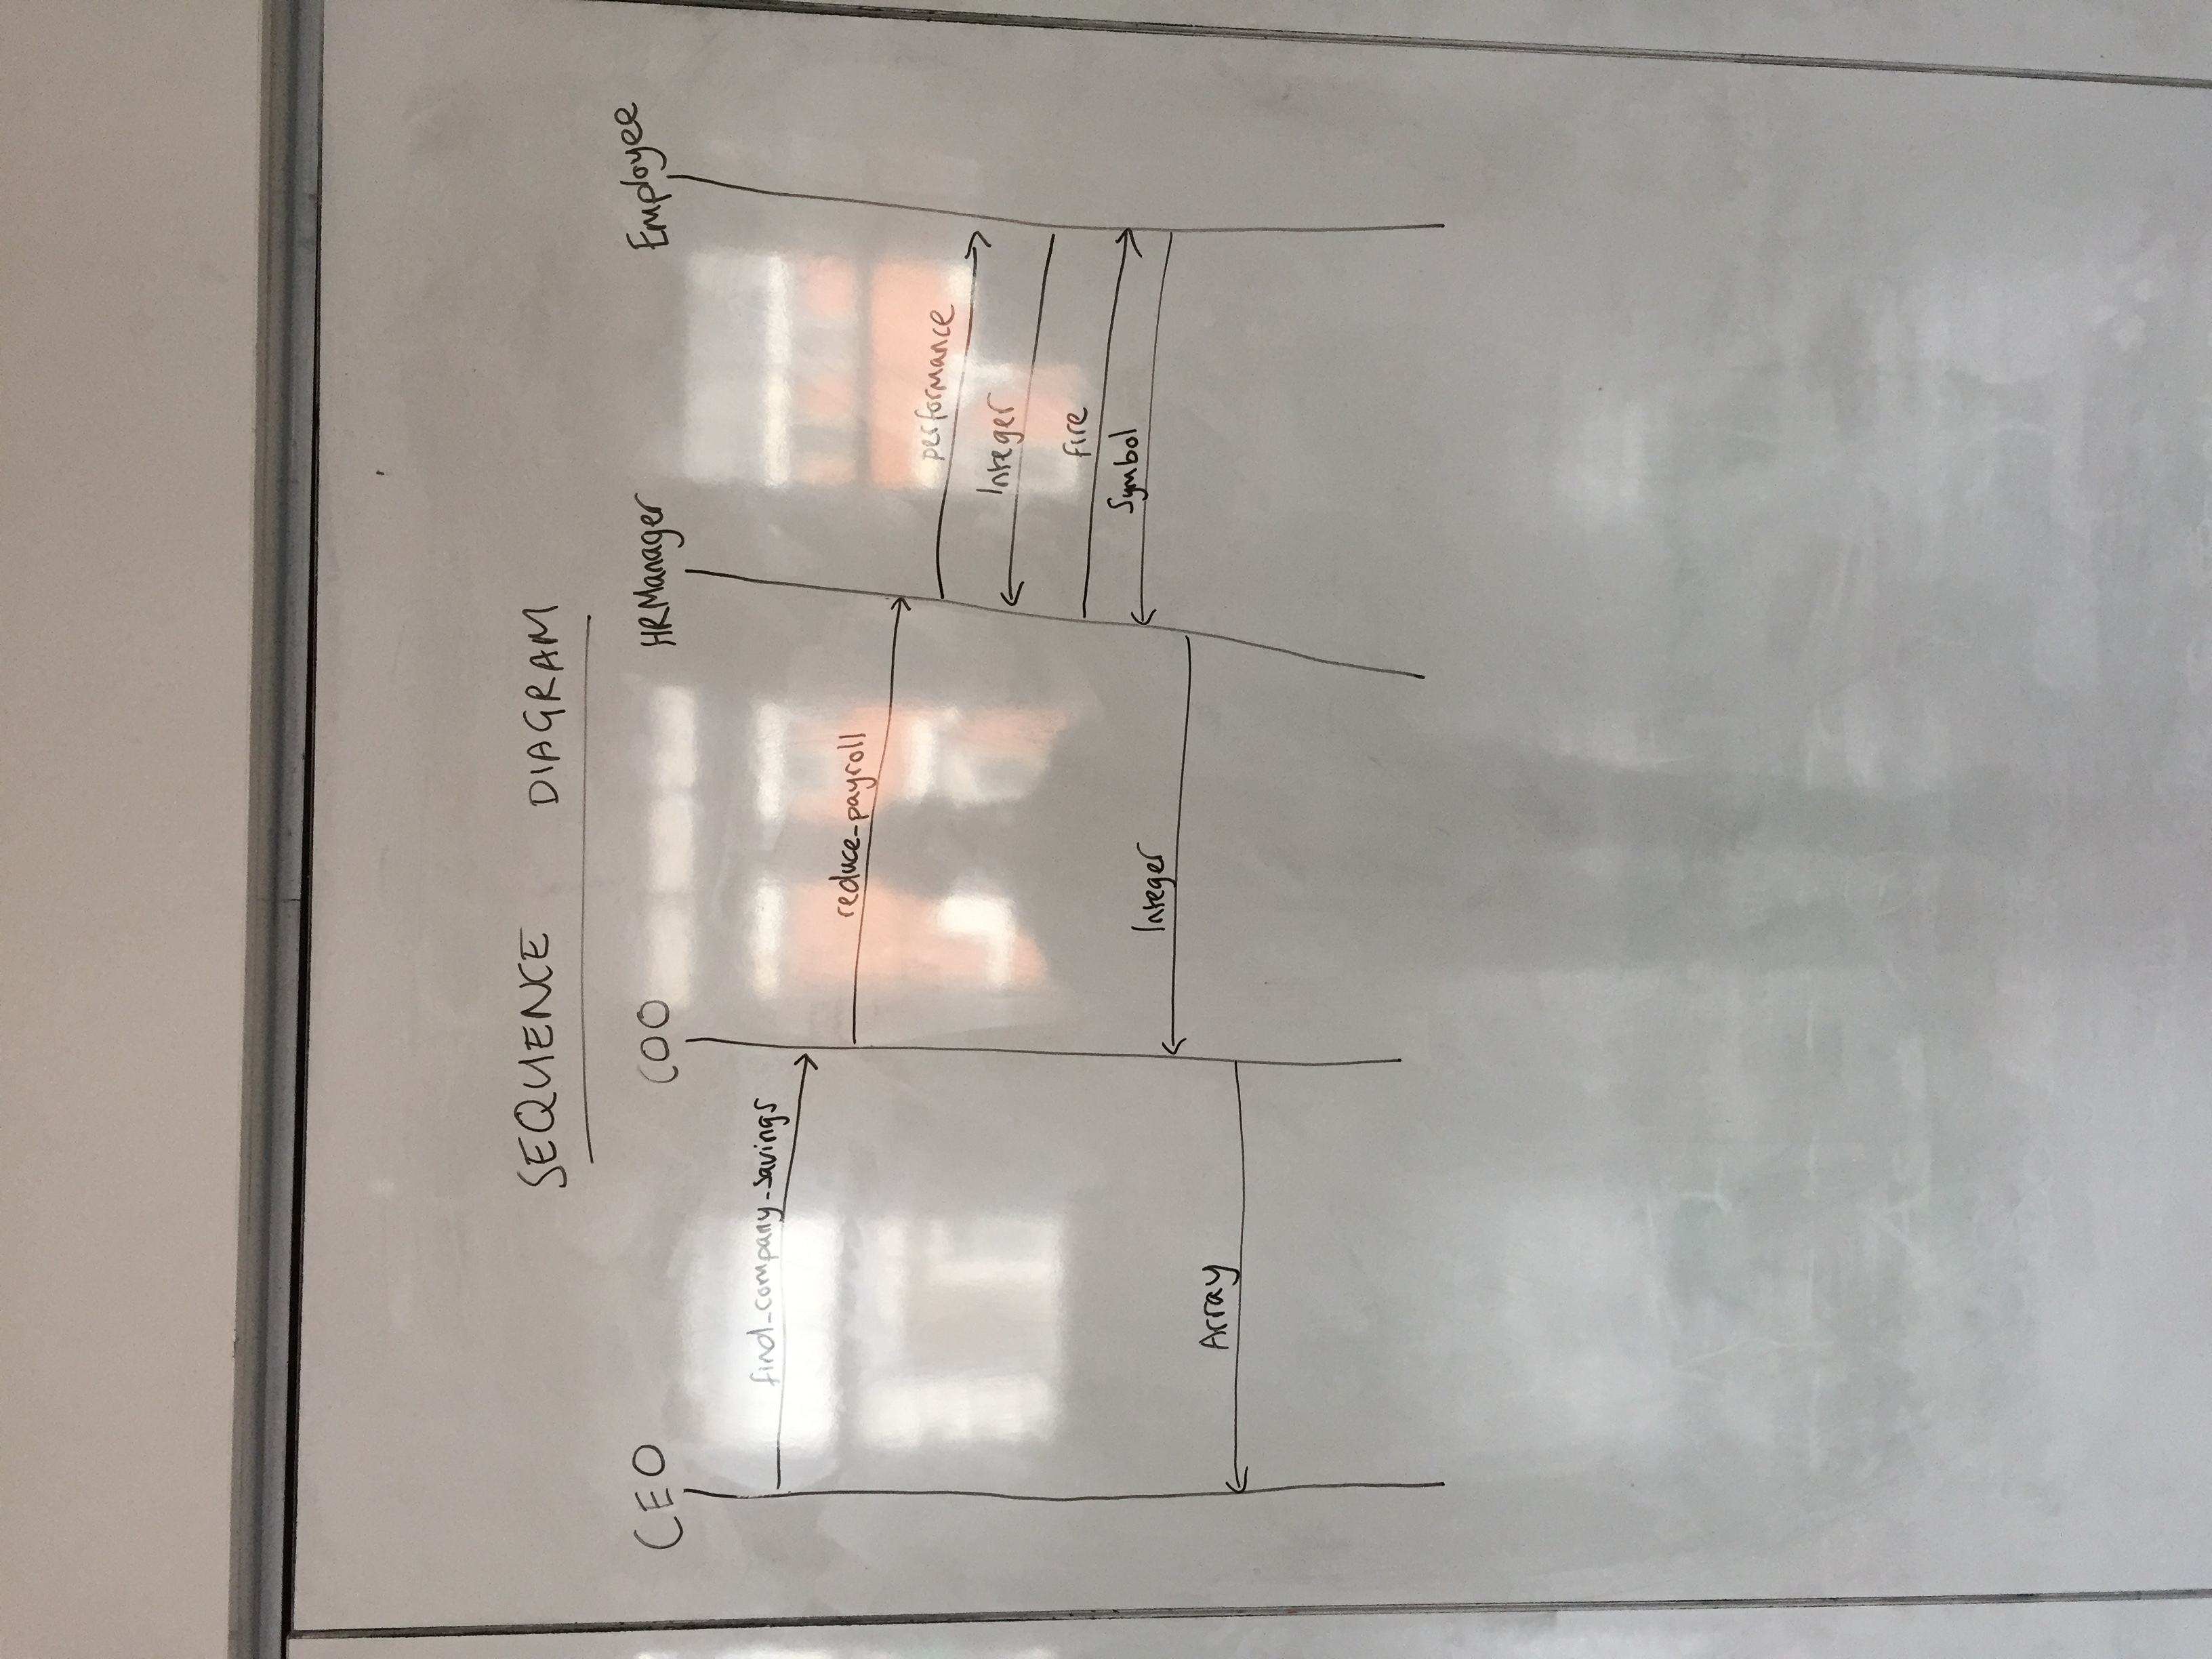 SEQUENCE DIAGRAM
CEO COO HRManager Employee
find_company_savings
reduce_payroll
performance
Integer
fire
Symbol
Integer
Array